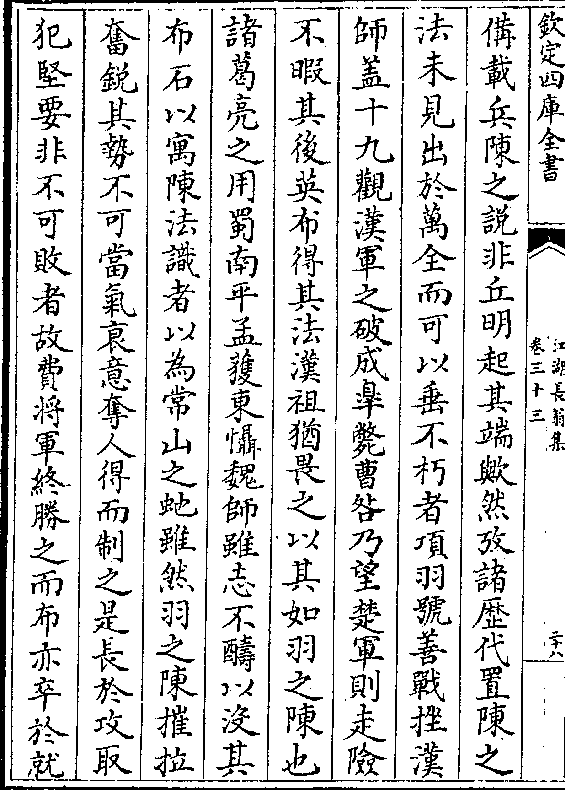 欽定四庫全書
江湖長翁集
卷三十三
二十八
備載兵陳之說非丘明起其端歟然攷諸歷代置陳之
法未見出於萬全而可以垂不朽者項羽號善戰挫漢
師蓋十九觀漢軍之破成臯斃曹咎乃望楚軍則走險
不暇其後英布得其法漢祖猶畏之以其如羽之陳也
諸葛亮之用蜀南平孟獲東懾魏師雖志不酬以沒其
布石以寓陳法識者以為常山之虵雖然羽之陳摧拉
奮銳其勢不可當氣裒意奪人得而制之是長於攻取
犯堅要非不可敗者故費將軍終勝之而布亦卒於就